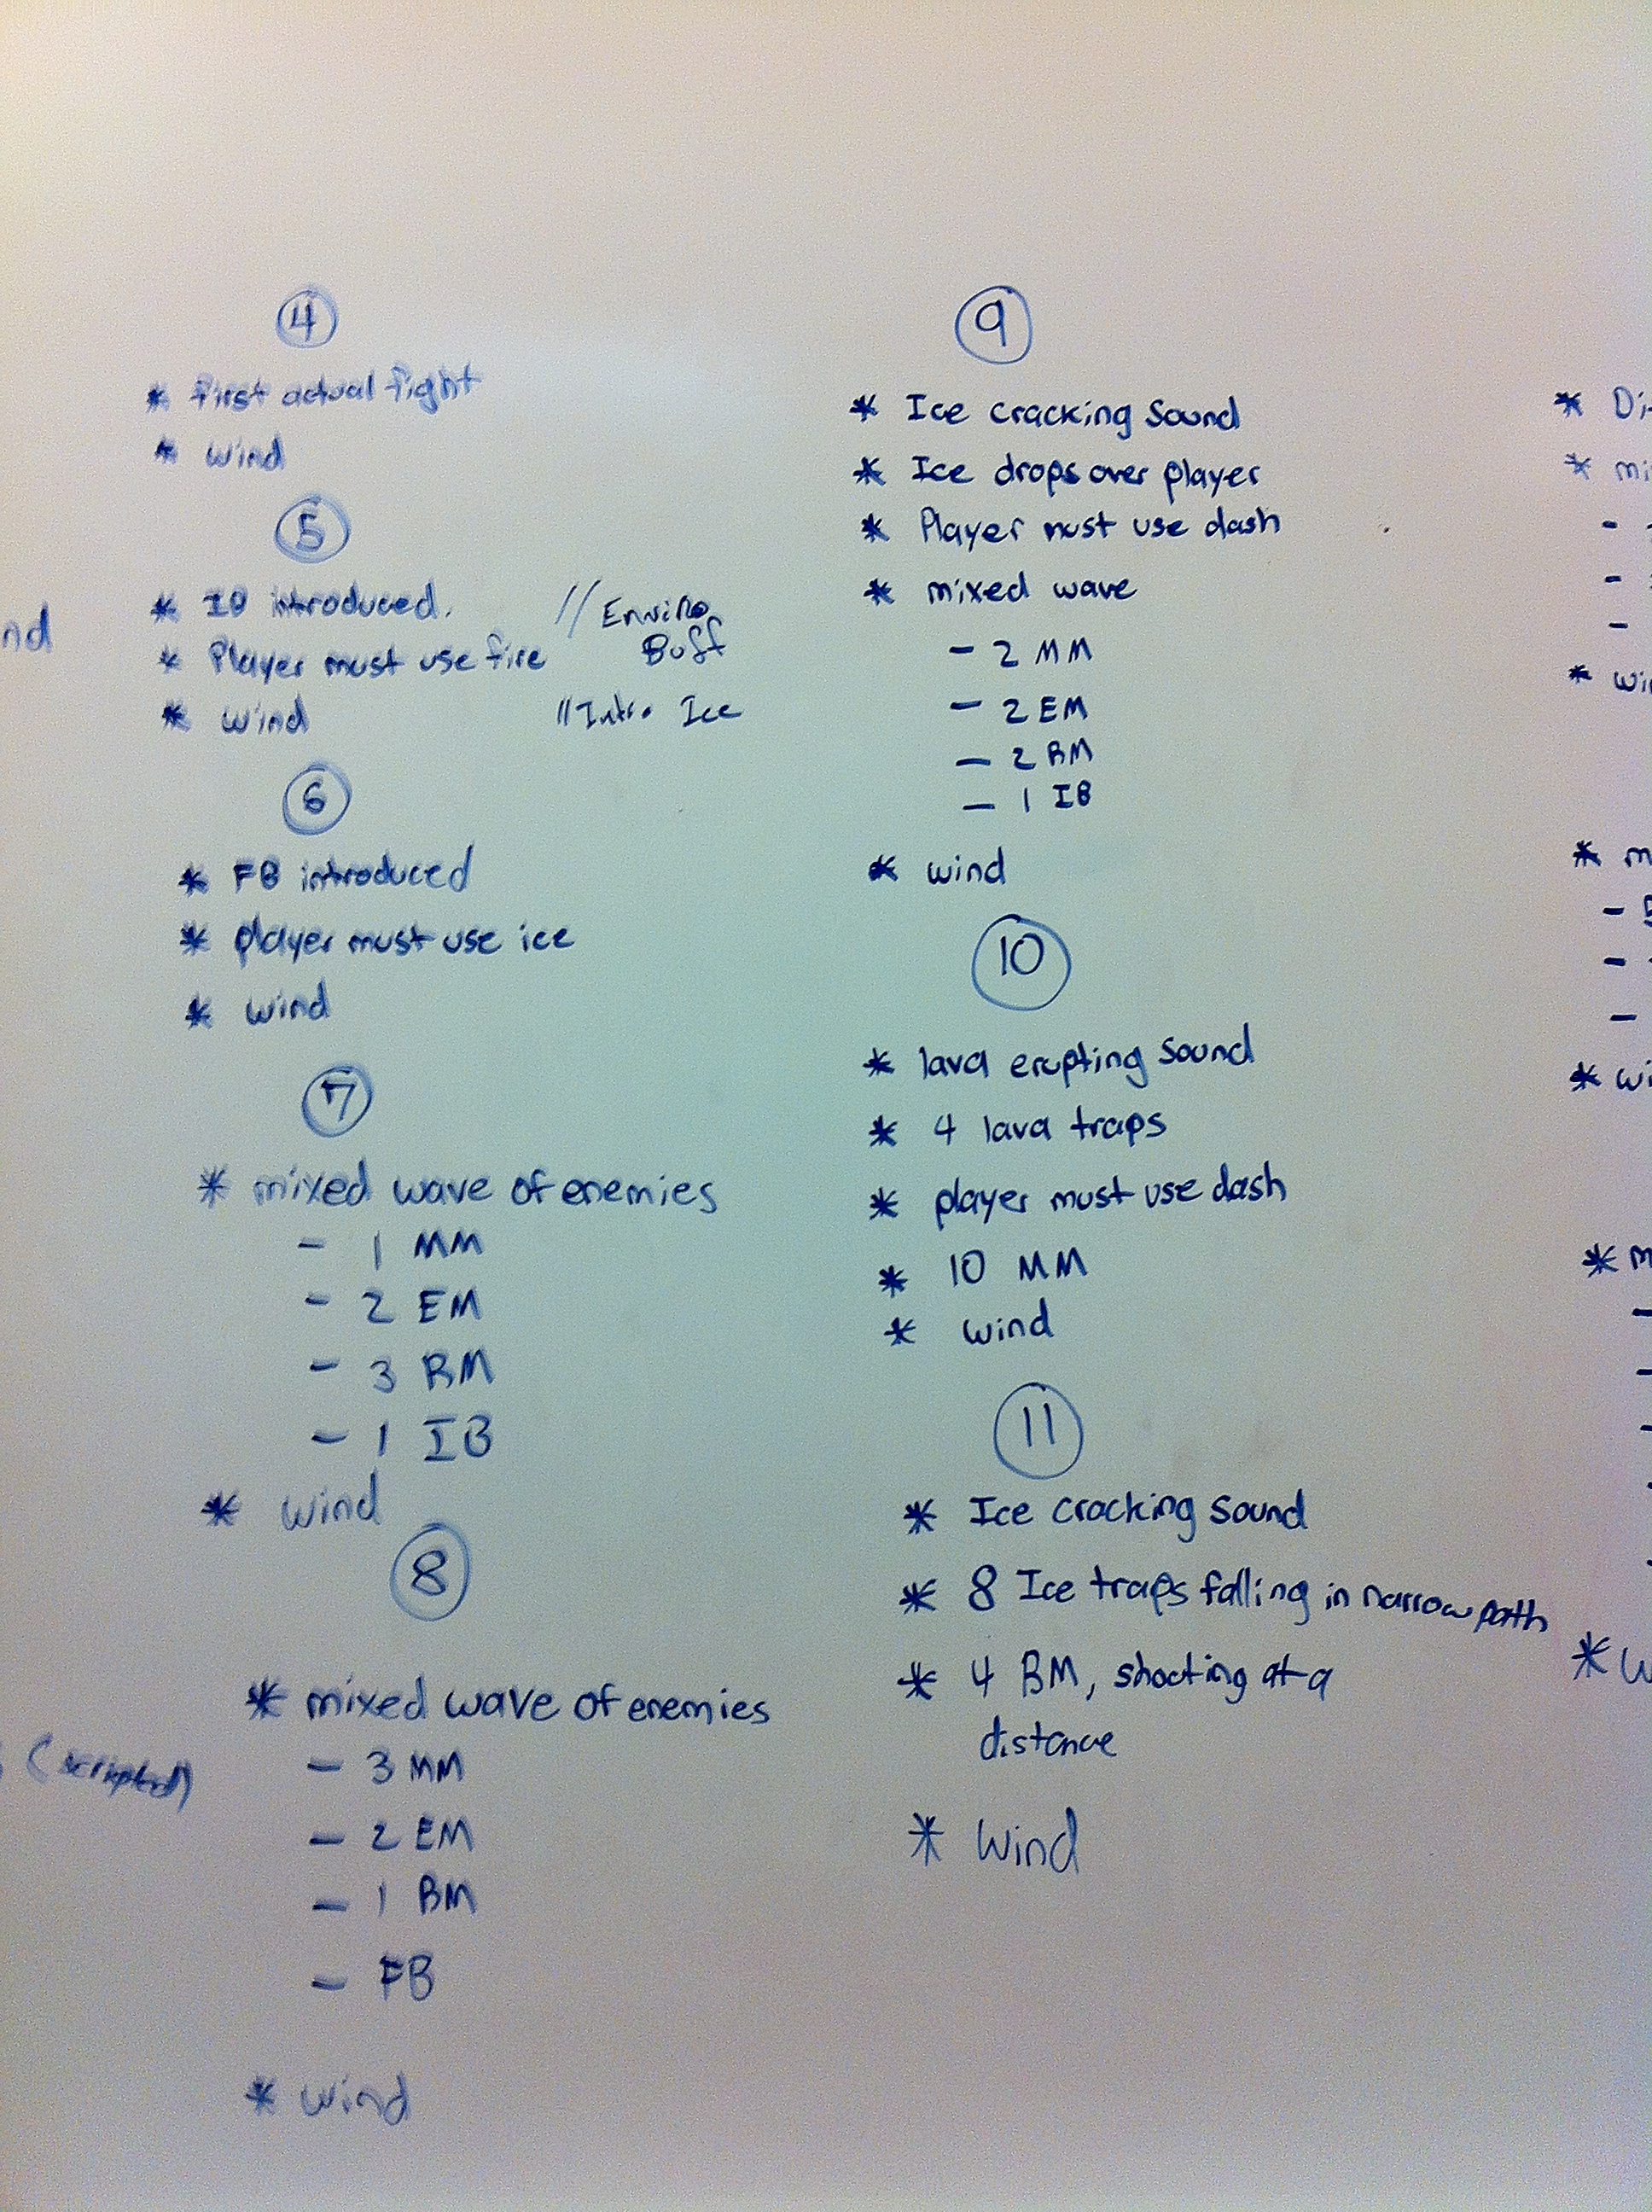 4
* First actual fight
* wind
5
* IB introduced. // Enviro
Buff
* Player must use fire
* wind // Intro Ice
6
* FB introduced
* player must use ice
* wind
7
* mixed wave of enemies
- 1 MM
- 2 EM
- 3 BM
- 1 IB
* wind
8
* mixed wave of enemies
- 3 MM
- 2 EM
- 1 BM
- FB
* wind
nd
(scripted)
9
* Ice cracking sound
* Ice drops over player
* Player must use dash
* mixed wave
- 2 MM
- 2 EM
- 2 BM
- 1 IB
* wind
10
* lava erupting sound
* 4 lava traps
* player must use dash
* 10 MM
* wind
11
* Ice cracking sound
* 8 Ice traps falling in narrow path
* 4 BM, shooting at a
distance
* Wind
* Di
* mi
-
-
-
* wi
* m
-
-
-
* wi
* m
-
-
-
* W